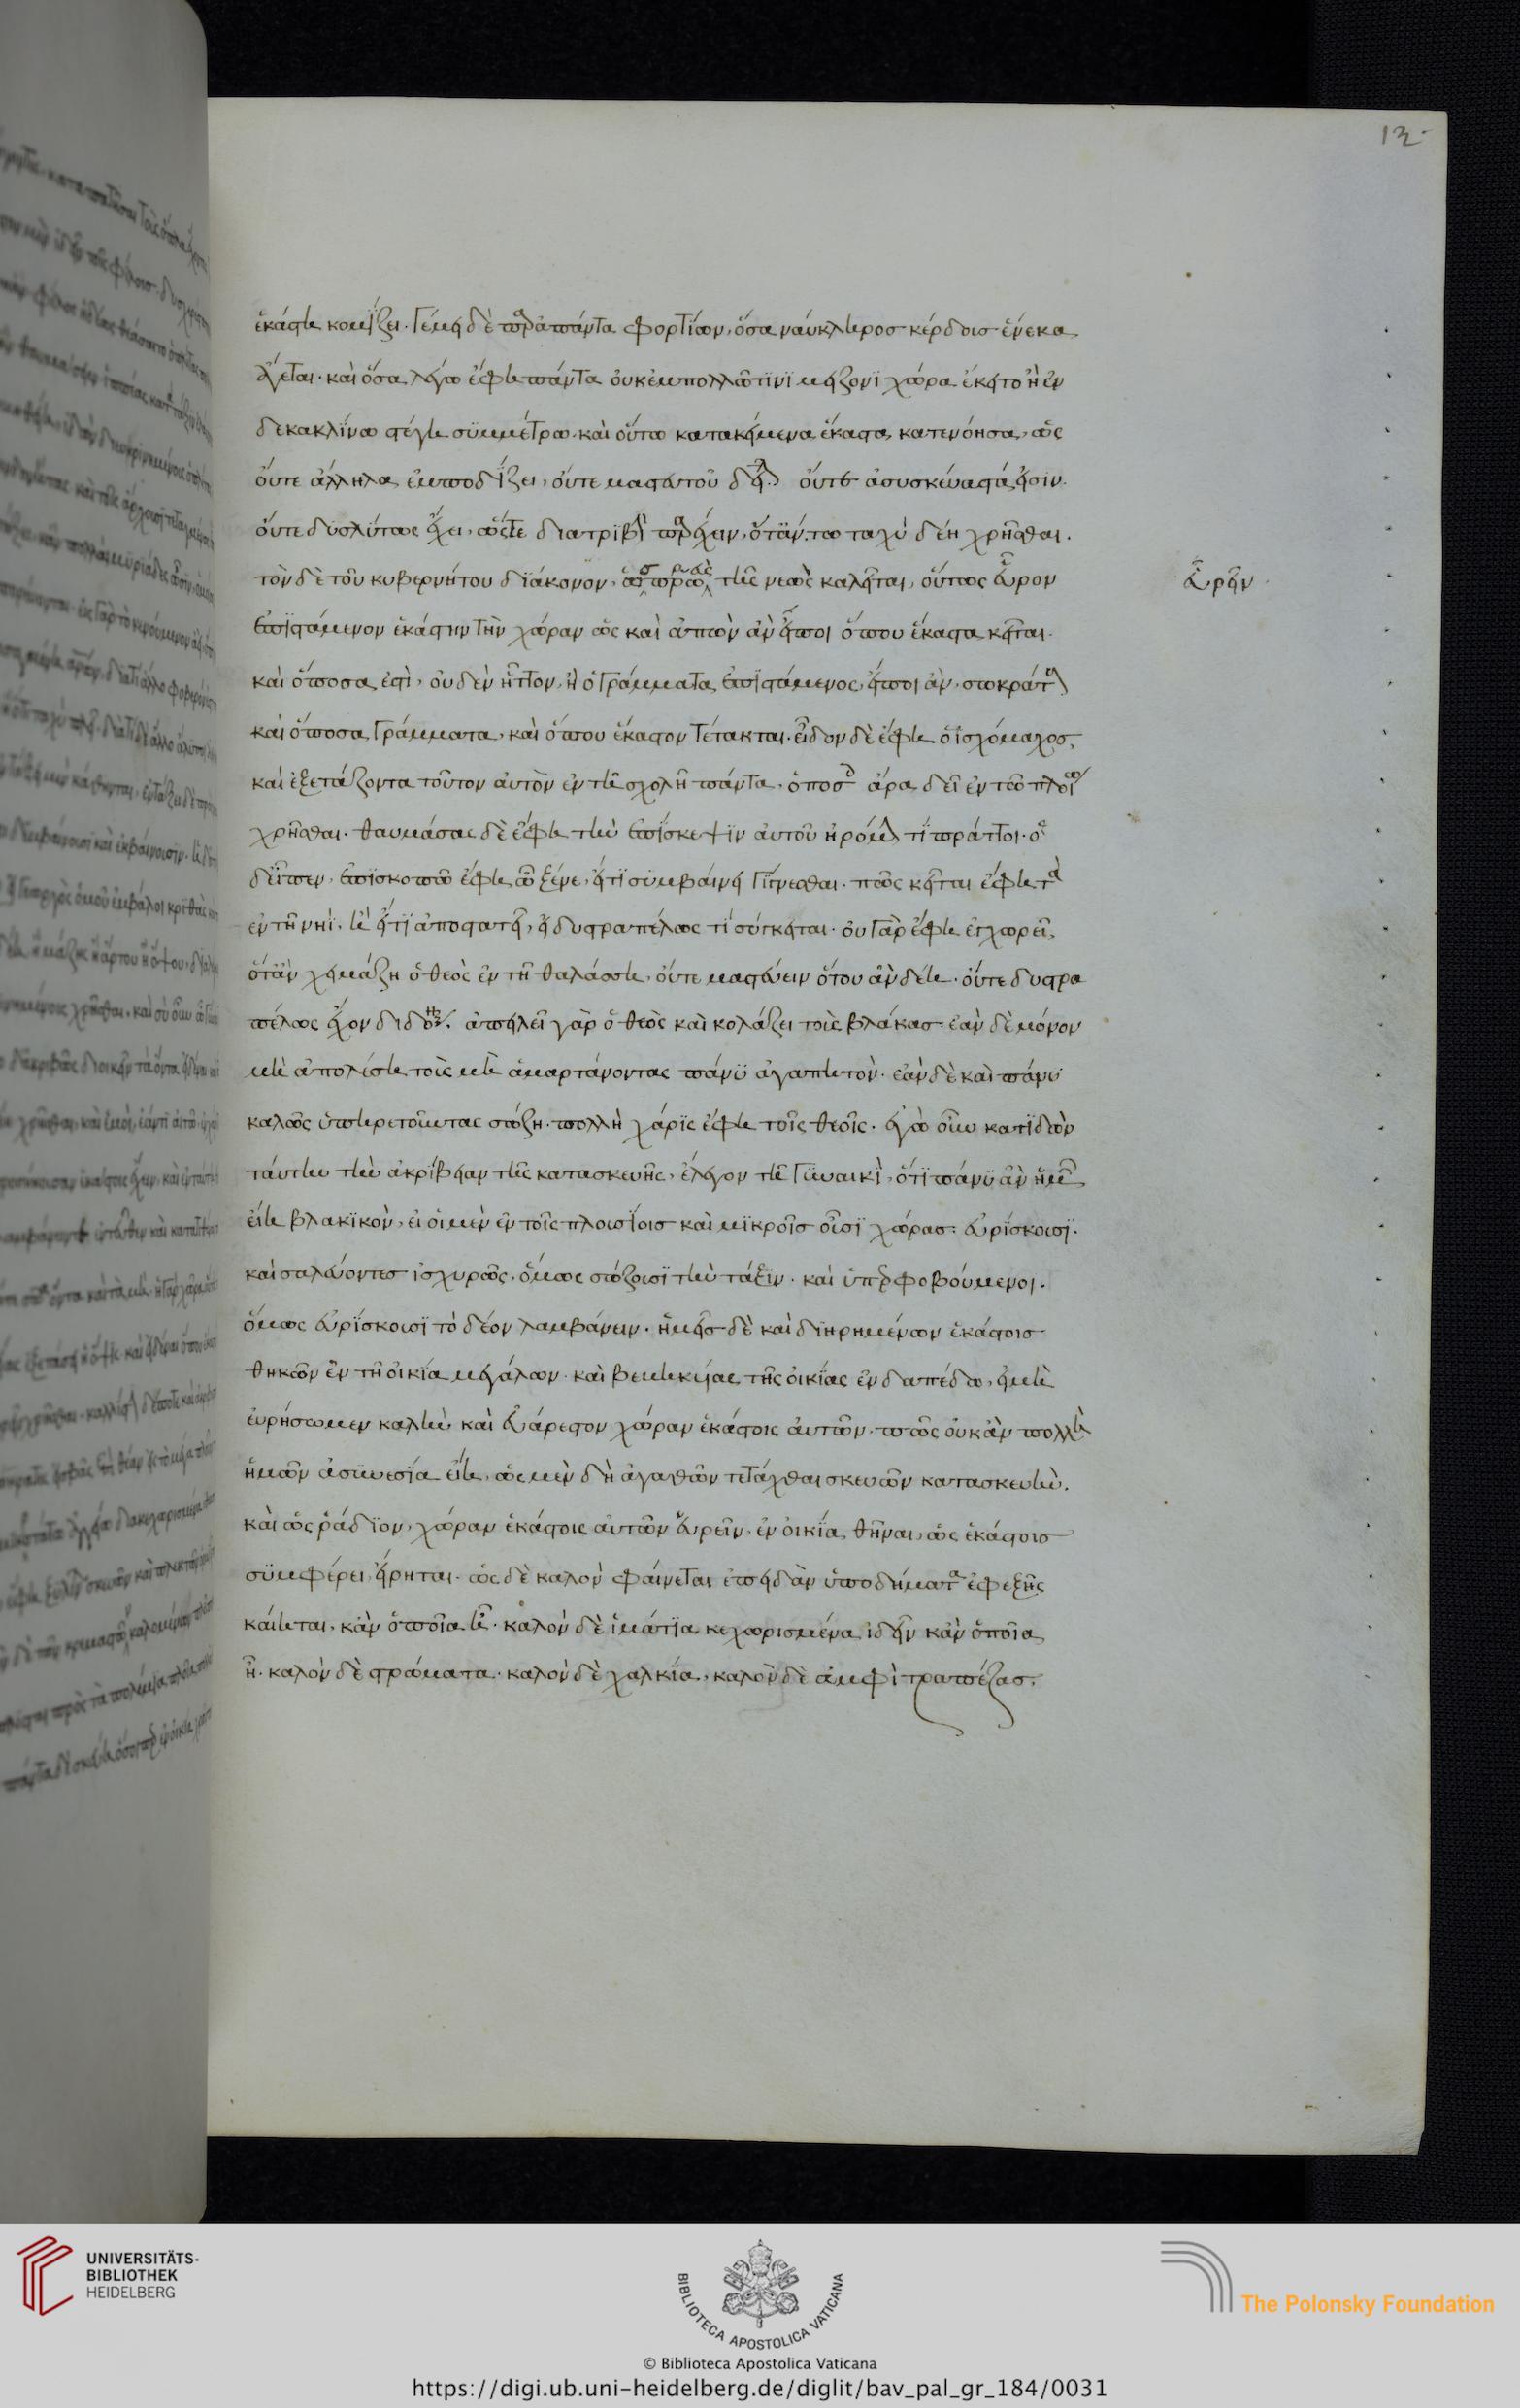 12·
ἑκάστη κομίζει. γέμει δὲ παρὰ πάντα φορτίων, ὅσα ναύκληρος κέρδους ἕνεκα
ἄγεται. καὶ ὅσα λέγω ἔφη πάντα οὐκ ἐμπολλῶ τινὶ μείζονι χώρα ἔκειτο ἢ ἐν
δεκακλίνω στέγη συμμέτρω. καὶ οὕτω κατακείμενα ἕκαστα κατενόησα, ὡς
οὔτε ἄλληλα ἐμποδίζει, οὔτε μαστευτοῦ δεῖται οὔτε ἀσυσκεύαστά εἰσιν.
οὔτε δυσλύτως ἔχει, ὥστε διατριβὴν παρέχειν, ὅτάν τω ταχὺ δέη χρῆσθαι.
τὸν δὲ τοῦ κυβερνήτου διάκονον, ὃς πρωρεὺς τῆς νεὼς καλεῖται, οὕτως εὗρον
εὑρεῖν
ἐπιστάμενον ἑκάστην τὴν χώραν ὡς καὶ ἀπὼν ἂν εἴποι ὅπου ἕκαστα κεῖται.
καὶ ὁπόσα ἐστὶ, οὐδὲν ἧττον, ἢ ὁ γράμματα ἐπιστάμενος, εἴποι ἂν, σωκράτους
καὶ ὁπόσα γράμματα, καὶ ὅπου ἕκαστον τέτακται. εἶδον δὲ ἔφη ὁ ἰσχόμαχος,
καὶ ἐξετάζοντα τοῦτον αὐτὸν ἐν τῆ σχολῆ πάντα, ὁπόσοις ἄρα δεῖ ἐν τῶ πλοίω
χρῆσθαι. θαυμάσας δὲ ἔφη τὴν ἐπίσκεψιν αὐτοῦ ἠρόμην τί πράττοι. ὁ
δ εἶπεν, ἐπισκοπῶ ἔφη ὦ ξένε, εἴ τι συμβαίνει γίγνεσθαι. πῶς κεῖται ἔφη τὰ
ἐν τῆ νηὶ, ἢ εἴ τι ἀποστατεῖ, ἢ δυστραπέλως τί σύγκειται. οὐ γὰρ ἔφη ἐγχωρεῖ,
ὅτὰν χειμάζη ὁ θεὸς ἐν τῆ θαλάσση, οὔτε μαστεύειν ὅτου ἂν δέη. οὔτε δυστρα
πέλως ἔχον διδόναι. ἀπειλεῖ γὰρ ὁ θεὸς καὶ κολάζει τοὺς βλάκας. ἐὰν δὲ μόνον
μὴ ἀπολέση τοὺς μὴ ἁμαρτάνοντας πάνυ ἀγαπητὸν. ἐὰν δὲ καὶ πάνυ
καλῶς ὑπηρετοῦντας σώζη. πολλὴ χάρις ἔφη τοῖς θεοῖς. ἐγὼ οὖν κατιδὼν
ταύτην τὴν ἀκρίβειαν τῆς κατασκευῆς, ἔλεγον τῆ γυναικὶ, ὅτι πάνυ ἂν ἡμῶν
εἴη βλακικὸν, εἰ οἱ μὲν ἐν τοῖς πλοισίοις καὶ μικροῖς οὖσι χώρας εὑρίσκουσι.
καὶ σαλεύοντες ἰσχυρῶς, ὅμως σώζουσι τὴν τάξιν. καὶ ὑπερφοβούμενοι.
ὅμως εὑρίσκουσι τὸ δέον λαμβάνειν. ἡμεῖς δὲ καὶ διηρημένων ἑκάστοις
θηκῶν ἐν τῆ οἰκία μεγάλων. καὶ βεβηκυίας τῆς οἰκίας ἐν δαπέδω, εἰ μὴ
εὑρήσωμεν καλὴν καὶ εὐάρεστον χώραν ἑκάστοις αὐτῶν. πῶς οὐκ ἂν πολλὴ
ἡμῶν ἀσυνεσία εἴη, ὡς μὲν δὴ ἀγαθὸν τετάχθαι σκευῶν κατασκευὴν.
καὶ ὡς ῥάδιον, χώραν ἑκάστοις αὐτῶν εὑρεῖν, ἐν οἰκία θεῖναι, ὡς ἑκάστοις
συμφέρει, εἴρηται. ὡς δὲ καλὸν φαίνεται ἐπειδὰν ὑποδήματα ἐφεξῆς
κάηται, κἂν ὁποῖα ἦ. καλὸν δὲ ἱμάτια κεχωρισμένα ἰδεῖν κἂν ὁποῖα
ἦ. καλὸν δὲ στρώματα. καλὸν δὲ χαλκία, καλὸν δὲ ἀμφὶ τραπέζας.
UNIVERSITÄTS-
BIBLIOTHEK
HEIDELBERG
BIBLIOTECA APOSTOLICA VATICANA
The Polonsky Foundation
© Biblioteca Apostolica Vaticana
https://digi.ub.uni-heidelberg.de/diglit/bav_pal_gr_184/0031